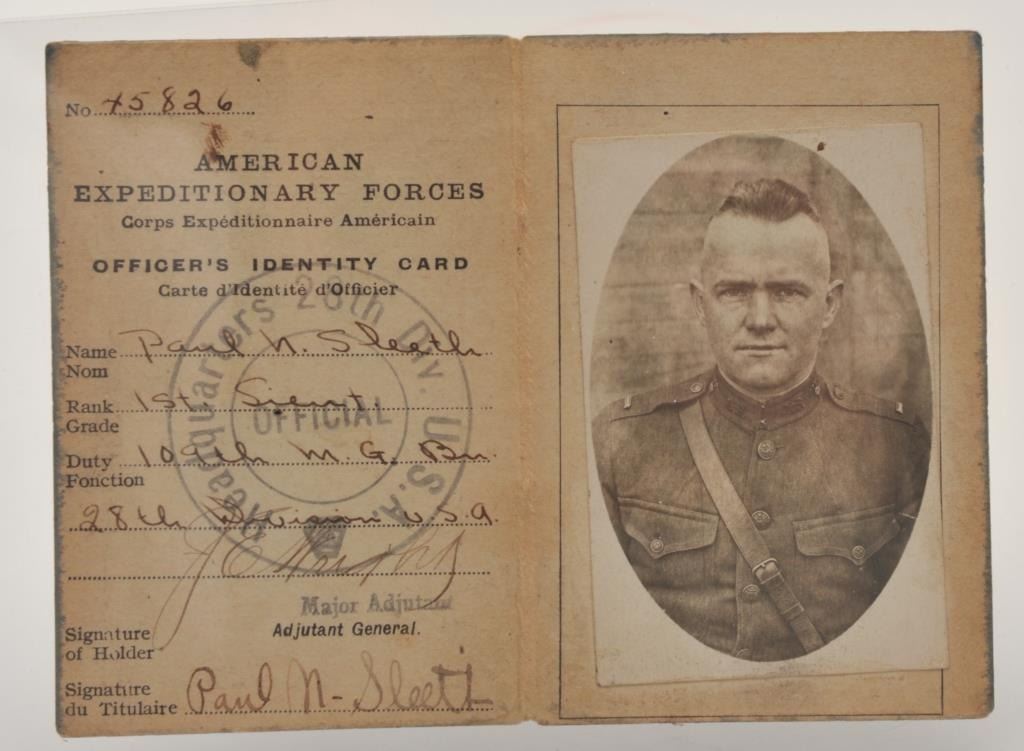 No. 45826
AMERICAN
EXPEDITIONARY FORCES
Corps Expéditionnaire Américain
OFFICER'S IDENTITY CARD
Carte d'Identité d'Officier
Headquarters 28th Div. U.S.A.
OFFICIAL
Name Paul N. Sleeth
Nom
Rank 1st. Lieut.
Grade
Duty 109th M. G. Bn.
Fonction
28th Division U.S.A.
J C Wright
Major Adjutant
Adjutant General.
Signature
of Holder
Signature
du Titulaire Paul N. Sleeth